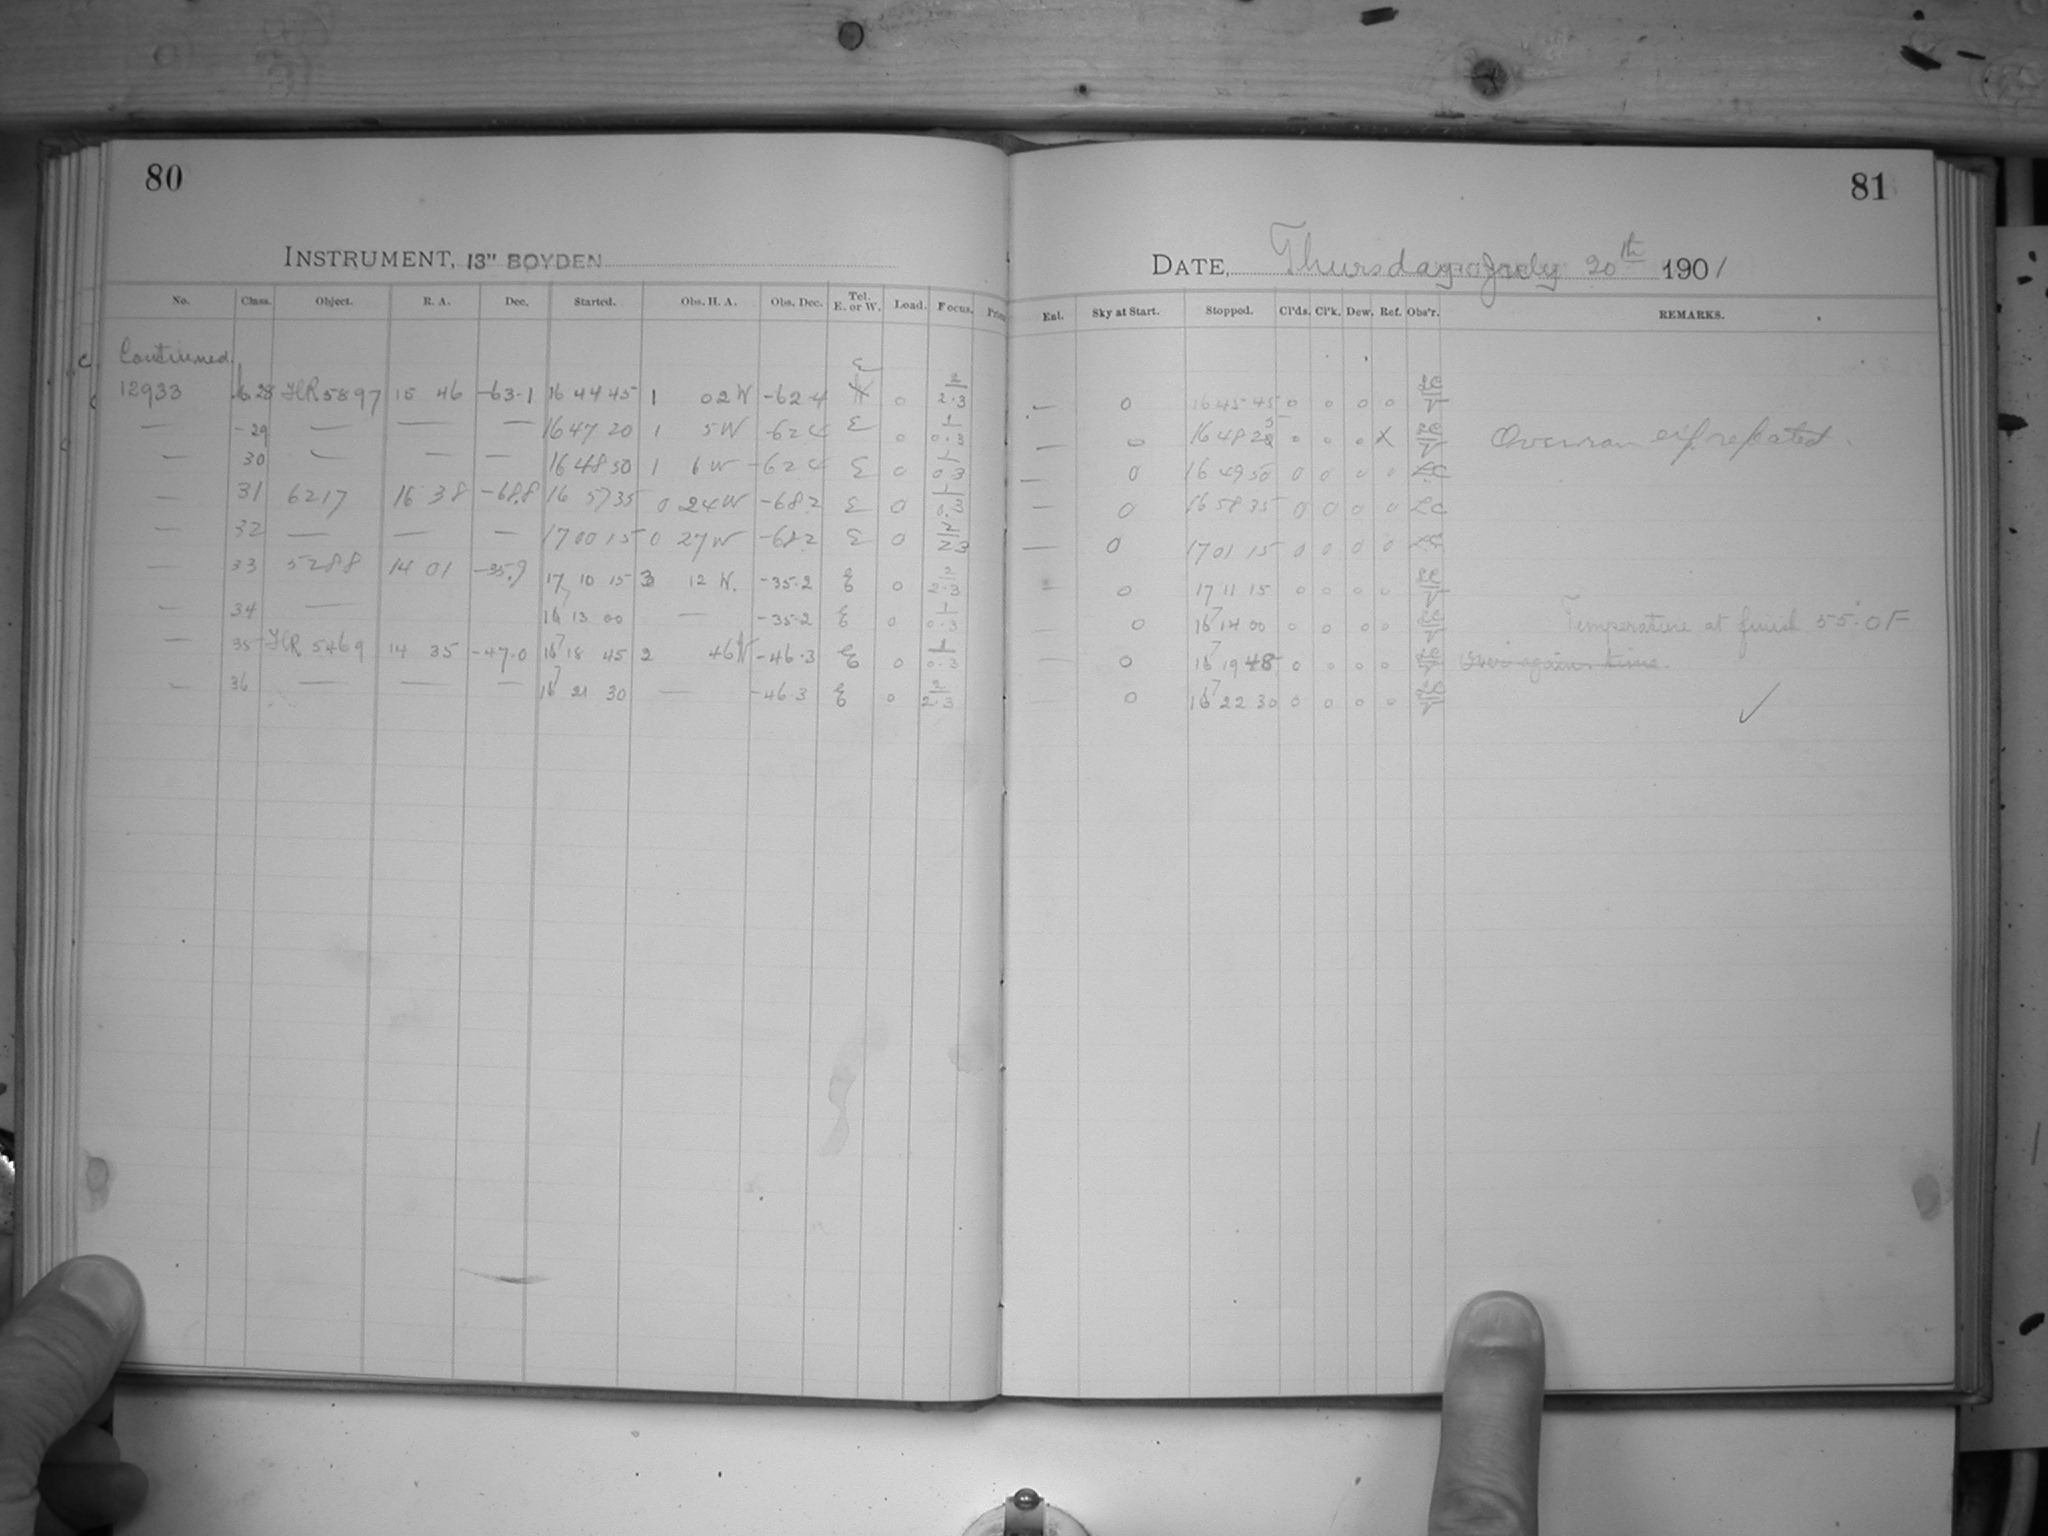 80
INSTRUMENT, 13" BOYDEN
No. Class. Object. R. A. Dec. Started. Obs. H. A. Obs. Dec. Tel. E. or W. Load. Focus.
Continued.
12933 28 HR 5897 15 46 -63.1 16 44 45 1 02 W -62.4 E 0 2 2.3
— -29 — — — 16 47 20 1 5 W -62.4 E 0 1 0.3
— 30 — — — 16 48 50 1 6 W -62.4 E 0 1 0.3
— 31 6217 16 38 -68.8 16 57 35 0 24 W -68.2 E 0 1 0.3
— 32 — — — 17 00 15 0 27 W -68.2 E 0 2 2.3
— 33 5288 14 01 -35.9 17 10 15 3 12 W. -35.2 E 0 2 2.3
— 34 — 17 13 00 — -35.2 E 0 1 0.3
— 35 HR 5469 14 35 -47.0 17 18 45 2 46 W -46.3 E 0 1 0.3
— 36 — — — 17 21 30 — -46.3 E 0 2 2.3
81
DATE, Thursday July 20th 1901
Enl. Sky at Start. Stopped. Cl'ds. Cl'k. Dew. Ref. Obs'r. REMARKS.
— 0 16 45 45 0 0 0 0 LC
— 0 16 48 0 0 0 X LC Overran exp repeated.
— 0 16 49 50 0 0 0 0 LC
— 0 16 58 35 0 0 0 0 LC
— 0 17 01 15 0 0 0 0 LC
— 0 17 11 15 0 0 0 0 LC
— 0 17 14 00 0 0 0 0 LC Temperature at finish 55.0 F
— 0 17 19 48 0 0 0 0 LC time
— 0 17 22 30 0 0 0 0 LC ✓